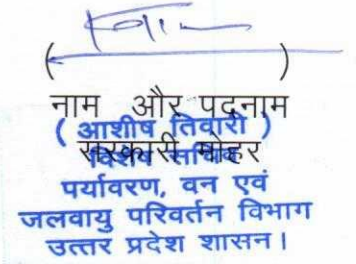 ( )
नाम और पदनाम
( आशीष तिवारी )
सरकारी मोहर
विशेष सचिव
पर्यावरण, वन एवं
जलवायु परिवर्तन विभाग
उत्तर प्रदेश शासन।